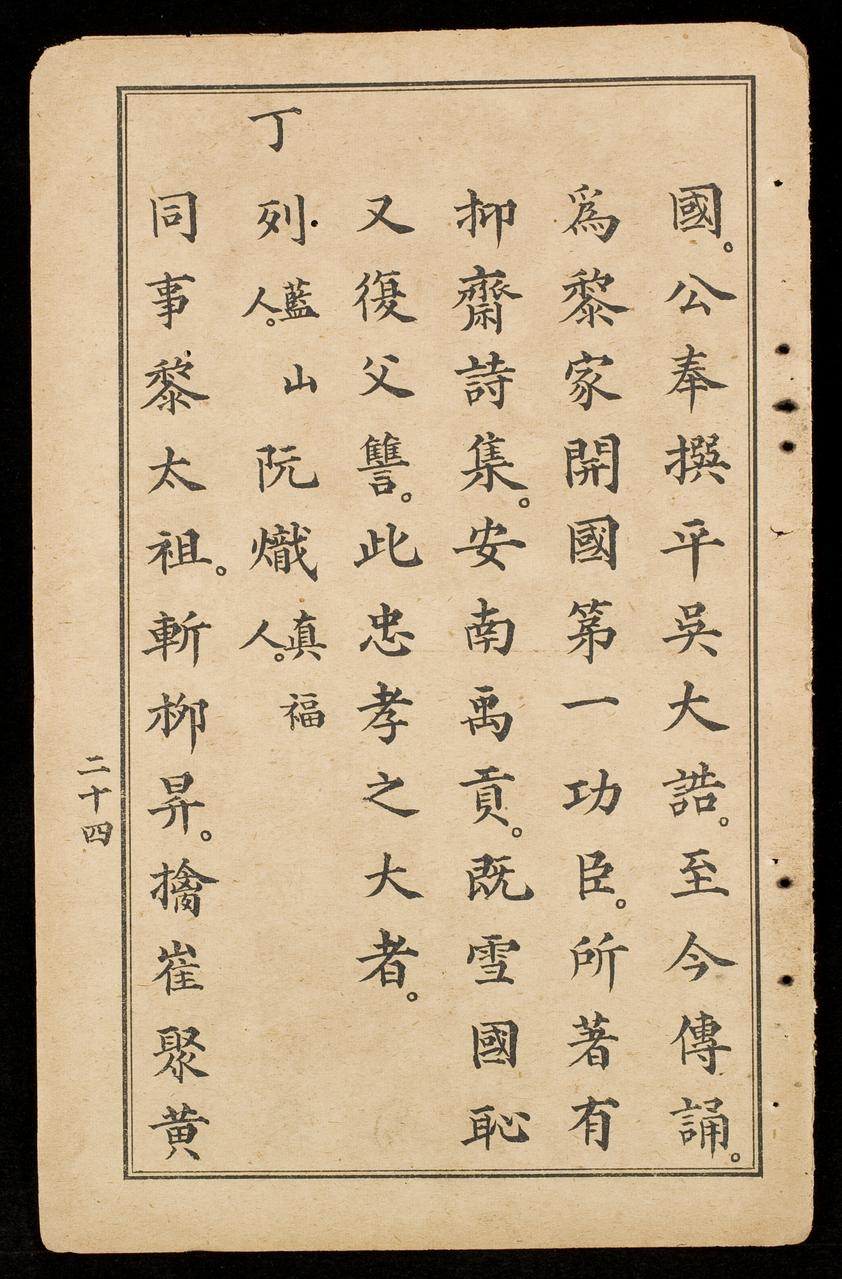 國。公奉撰平吳大誥。至今傳誦。
爲黎家開國第一功臣。所著有
抑齋詩集。安南禹貢。既雪國恥
又復父讐。此忠孝之大者。
丁列藍山人。阮熾真福人。
同事黎太祖。斬柳昇。擒崔聚黄
二十四